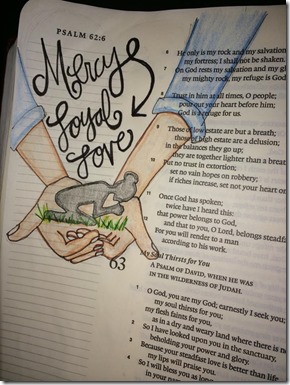 PSALM 62:6
Mercy &
Loyal
Love
6 He only is my rock and my salvation
my fortress; I shall not be shaken.
7 On God rests my salvation and my
my mighty rock, my refuge is God
8 Trust in him at all times, O people;
pour out your heart before him;
God is a refuge for us.
9 Those of low estate are but a breath;
those of high estate are a delusion;
in the balances they go up;
they are together lighter than a
10 Put no trust in extortion;
set no vain hopes on robbery;
if riches increase, set not your heart
11 Once God has spoken;
twice have I heard this:
that power belongs to God,
12 and that to you, O Lord, belongs
For you will render to a man
according to his work.
My Soul Thirsts for You
63 A PSALM OF DAVID, WHEN HE WAS
IN THE WILDERNESS OF JUDAH.
1 O God, you are my God; earnestly I seek you;
my soul thirsts for you;
my flesh faints for you,
as in a dry and weary land where there is
2 So I have looked upon you in the sanctuary,
beholding your power and glory.
3 Because your steadfast love is better than life
my lips will praise you.
4 So I will bless you as long